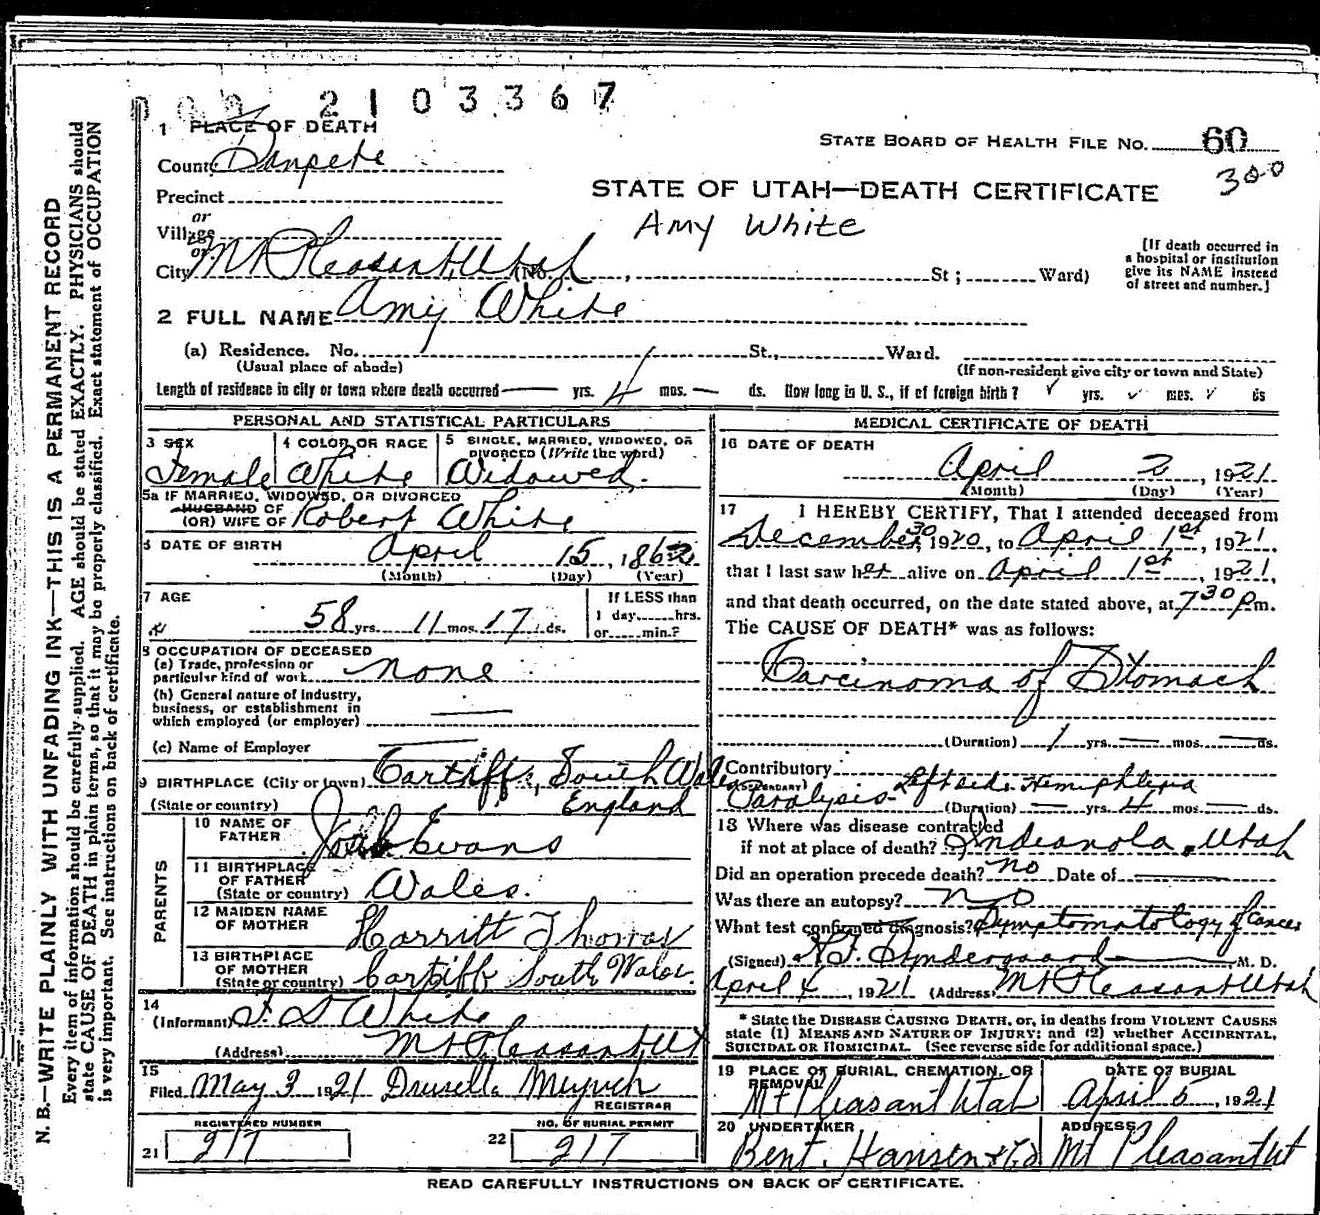 2103367
1 PLACE OF DEATH
STATE BOARD OF HEALTH FILE NO. 60
County Sanpete
300
Precinct
STATE OF UTAH—DEATH CERTIFICATE
or
Village
Amy White
or
City Mt Pleasant, Utah (No. , St; Ward)
[If death occurred in
a hospital or institution
give its NAME instead
of street and number.]
2 FULL NAME Amy White
(a) Residence. No. St., Ward.
(Usual place of abode)
(If non-resident give city or town and State)
Length of residence in city or town where death occurred — yrs. 4 mos. — ds. How long in U. S., if of foreign birth? ✓ yrs. ✓ mos. ✓ ds
PERSONAL AND STATISTICAL PARTICULARS
3 SEX Female
4 COLOR OR RACE White
5 SINGLE, MARRIED, WIDOWED, OR
DIVORCED (Write the word)
Widowed.
5a IF MARRIED, WIDOWED, OR DIVORCED
HUSBAND OF
(OR) WIFE OF Robert White
6 DATE OF BIRTH April 15, 1862
(Month) (Day) (Year)
7 AGE 58 yrs. 11 mos. 17 ds.
If LESS than
1 day hrs.
or min.?
8 OCCUPATION OF DECEASED
(a) Trade, profession or
particular kind of work none
(b) General nature of Industry,
business, or establishment in
which employed (or employer) —
(c) Name of Employer —
9 BIRTHPLACE (City or town) Cartiff, South Wales
(State or country) England
PARENTS
10 NAME OF
FATHER Evans
11 BIRTHPLACE
OF FATHER
(State or country) Wales.
12 MAIDEN NAME
OF MOTHER Harritt Thomas
13 BIRTHPLACE
OF MOTHER
(State or country) Cartiff South Wales.
14
(Informant) White
(Address) Mt Pleasant, Ut
15
Filed May 3 1921 Drusella
REGISTRAR
REGISTERED NUMBER
21 217
NO. OF BURIAL PERMIT
22 217
MEDICAL CERTIFICATE OF DEATH
16 DATE OF DEATH
April 2, 1921
(Month) (Day) (Year)
17 I HEREBY CERTIFY, That I attended deceased from
December 30, 1920, to April 1st, 1921,
that I last saw her alive on April 1st, 1921,
and that death occurred, on the date stated above, at 7 30 P.m.
The CAUSE OF DEATH* was as follows:
Carcinoma of Stomach
(Duration) 1 yrs. — mos. — ds.
Contributory
(SECONDARY)
Paralysis Left side Hemiphlegia
(Duration) — yrs. 4 mos. — ds.
18 Where was disease contracted
if not at place of death? Indianola, Utah
Did an operation precede death? no Date of —
Was there an autopsy? No
What test confirmed diagnosis? Symptomatology of Cancer
(Signed) M. D.
April 4, 1921 (Address) Mt Pleasant Utah
* State the DISEASE CAUSING DEATH, or, in deaths from VIOLENT CAUSES
state (1) MEANS AND NATURE OF INJURY; and (2) whether ACCIDENTAL,
SUICIDAL OR HOMICIDAL. (See reverse side for additional space.)
19 PLACE OF BURIAL, CREMATION, OR
REMOVAL
Mt Pleasant Utah
DATE OF BURIAL
April 5, 1921
20 UNDERTAKER
Bent. Hansen & Co
ADDRESS
Mt Pleasant Ut
READ CAREFULLY INSTRUCTIONS ON BACK OF CERTIFICATE.
N. B.—WRITE PLAINLY WITH UNFADING INK—THIS IS A PERMANENT RECORD
Every item of information should be carefully supplied. AGE should be stated EXACTLY. PHYSICIANS should
state CAUSE OF DEATH in plain terms, so that it may be properly classified. Exact statement of OCCUPATION
is very important. See instructions on back of certificate.